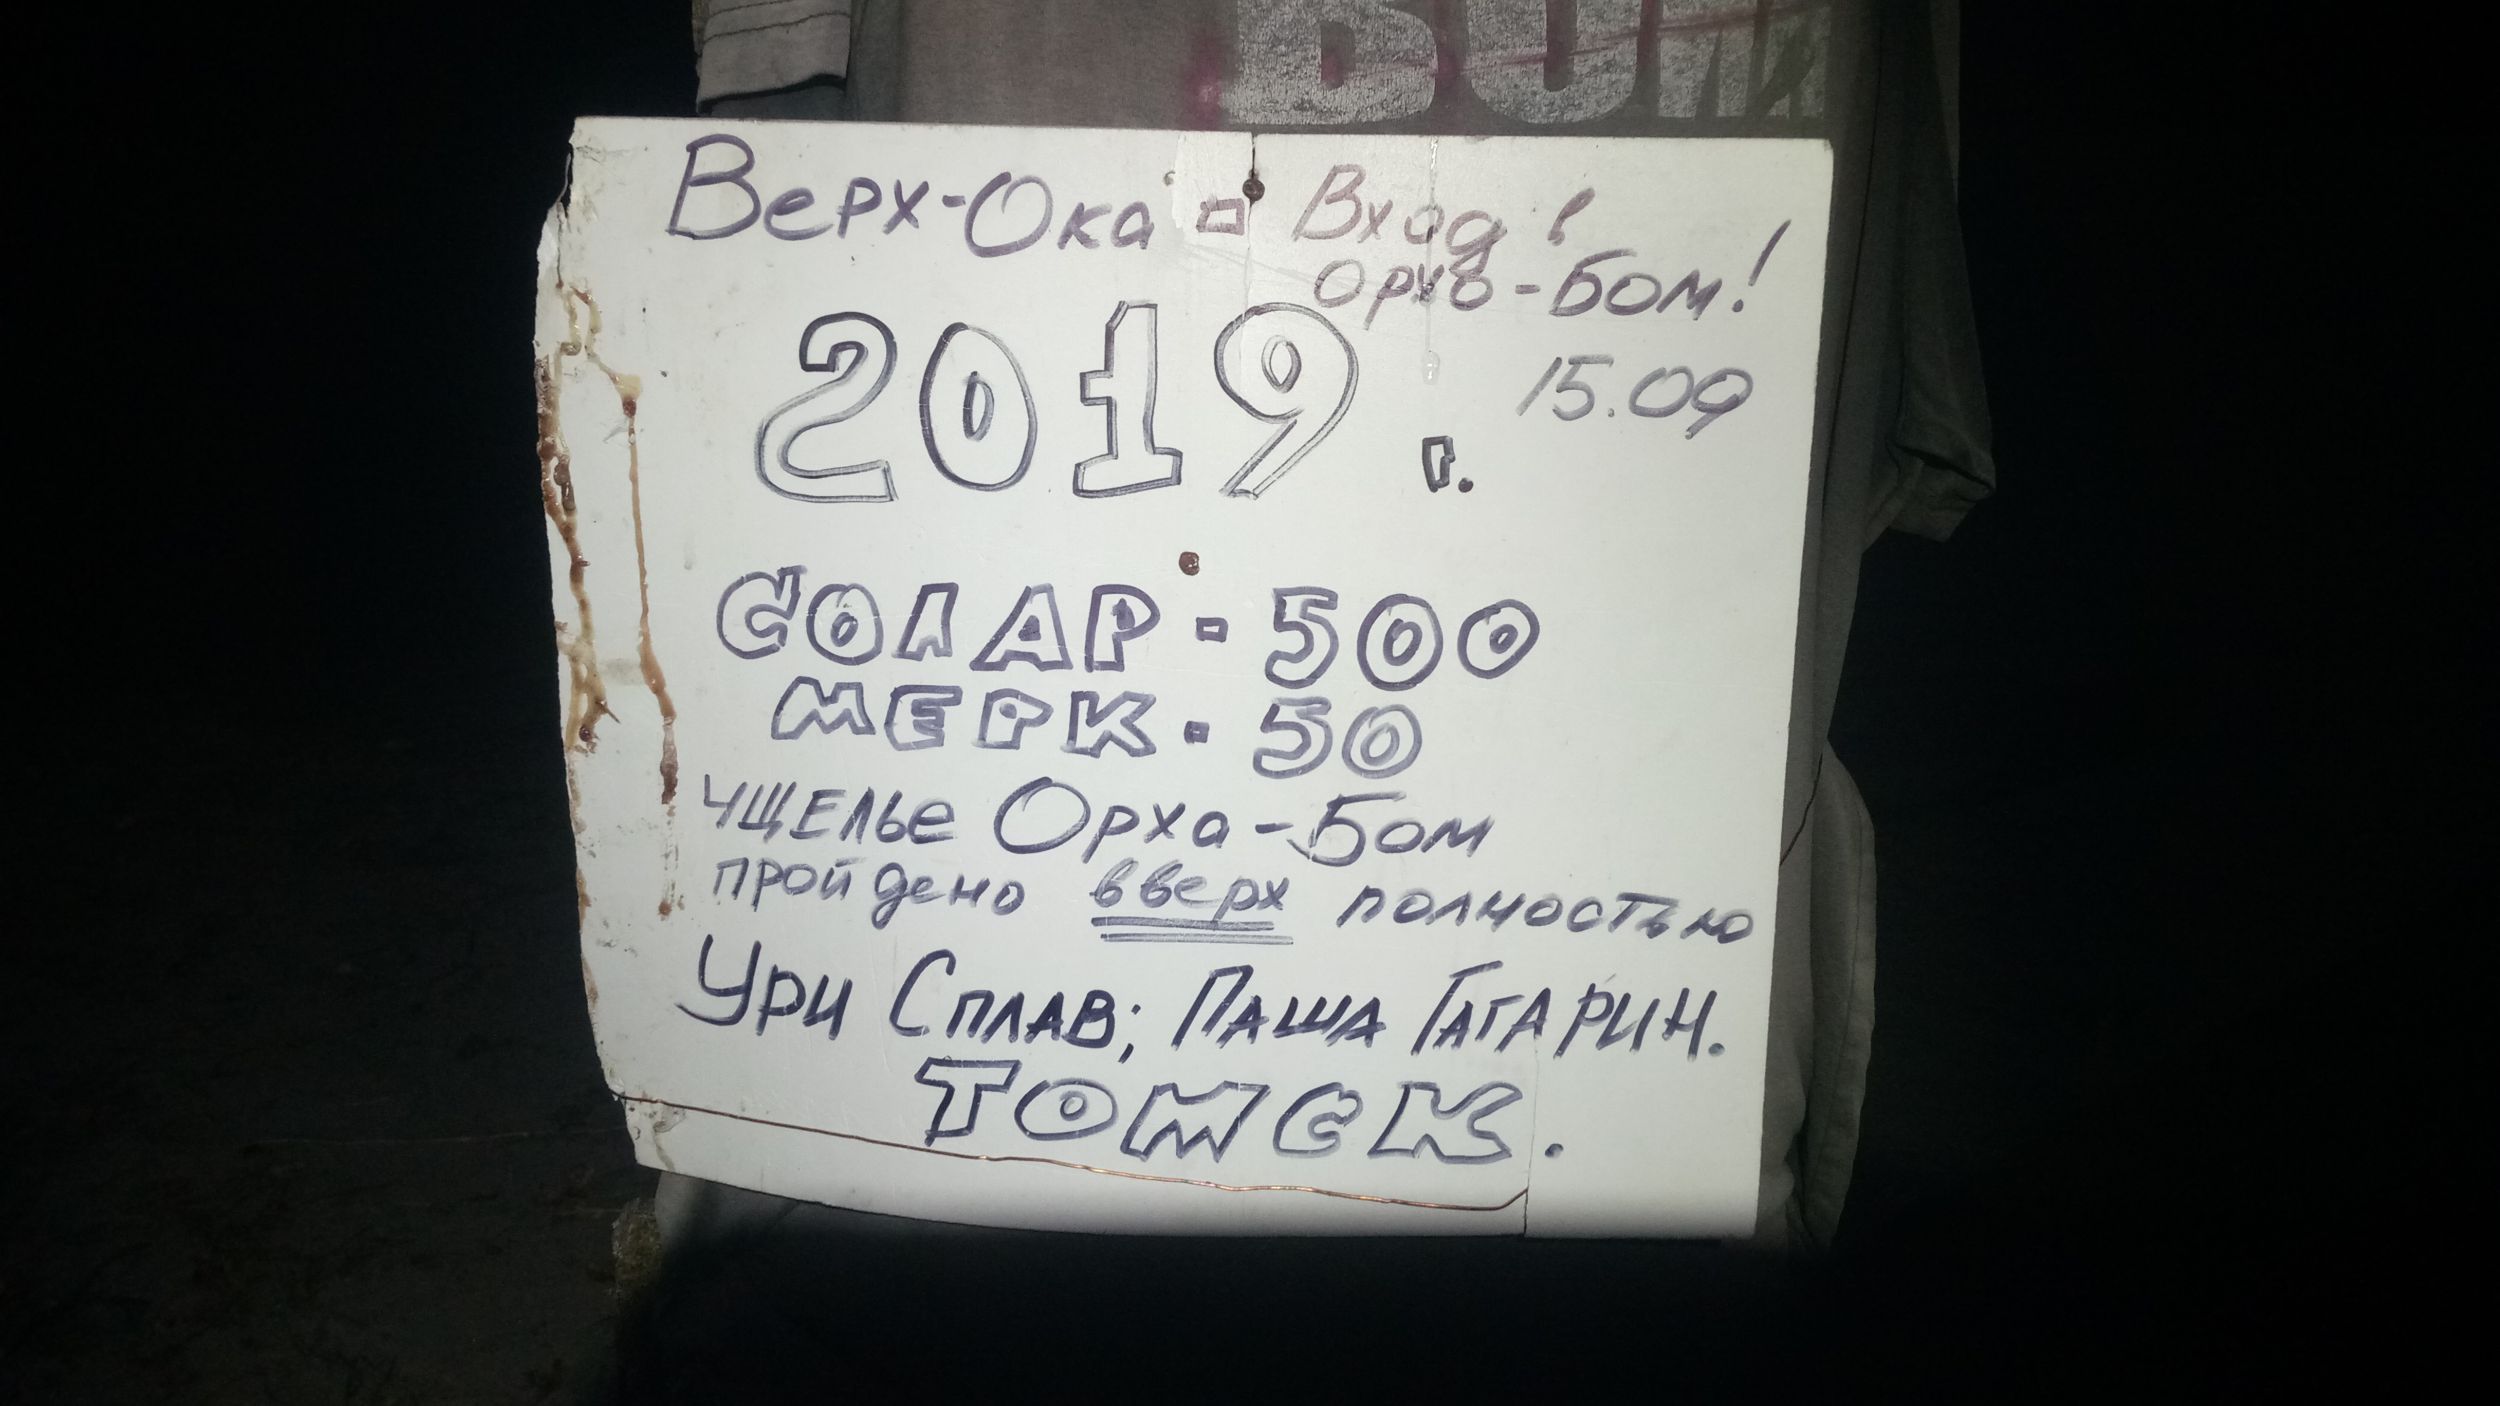 Верх-Ока - Вход в
Орхо-Бом!
2019 г.
15.09
СОЛАР - 500
МЕРК - 50
ущелье Орха-Бом
пройдено вверх полностью
Ури Сплав; Паша Гагарин.
ТОМСК.